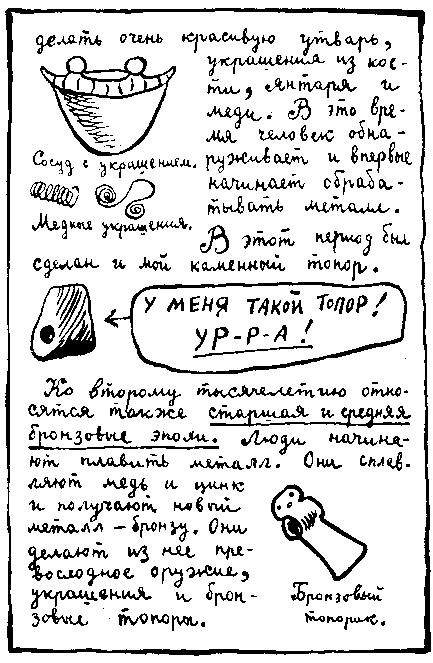 делать очень красивую утварь,
украшения из кос-
ти, янтаря и
меди. В это вре-
мя человек обна-
руживает и впервые
начинает обраба-
тывать металл.
Сосуд с украшением.
Медные украшения.
В этот период был
сделан и мой каменный топор.
У МЕНЯ ТАКОЙ ТОПОР!
УР-Р-А!
Ко второму тысячелетию отно-
сятся также старшая и средняя
бронзовые эпохи. Люди начина-
ют плавить металл. Они сплав-
ляют медь и цинк
и получают новый
металл – бронзу. Они
делают из нее пре-
восходное оружие,
украшения и брон-
зовые топоры.
Бронзовый
топорик.